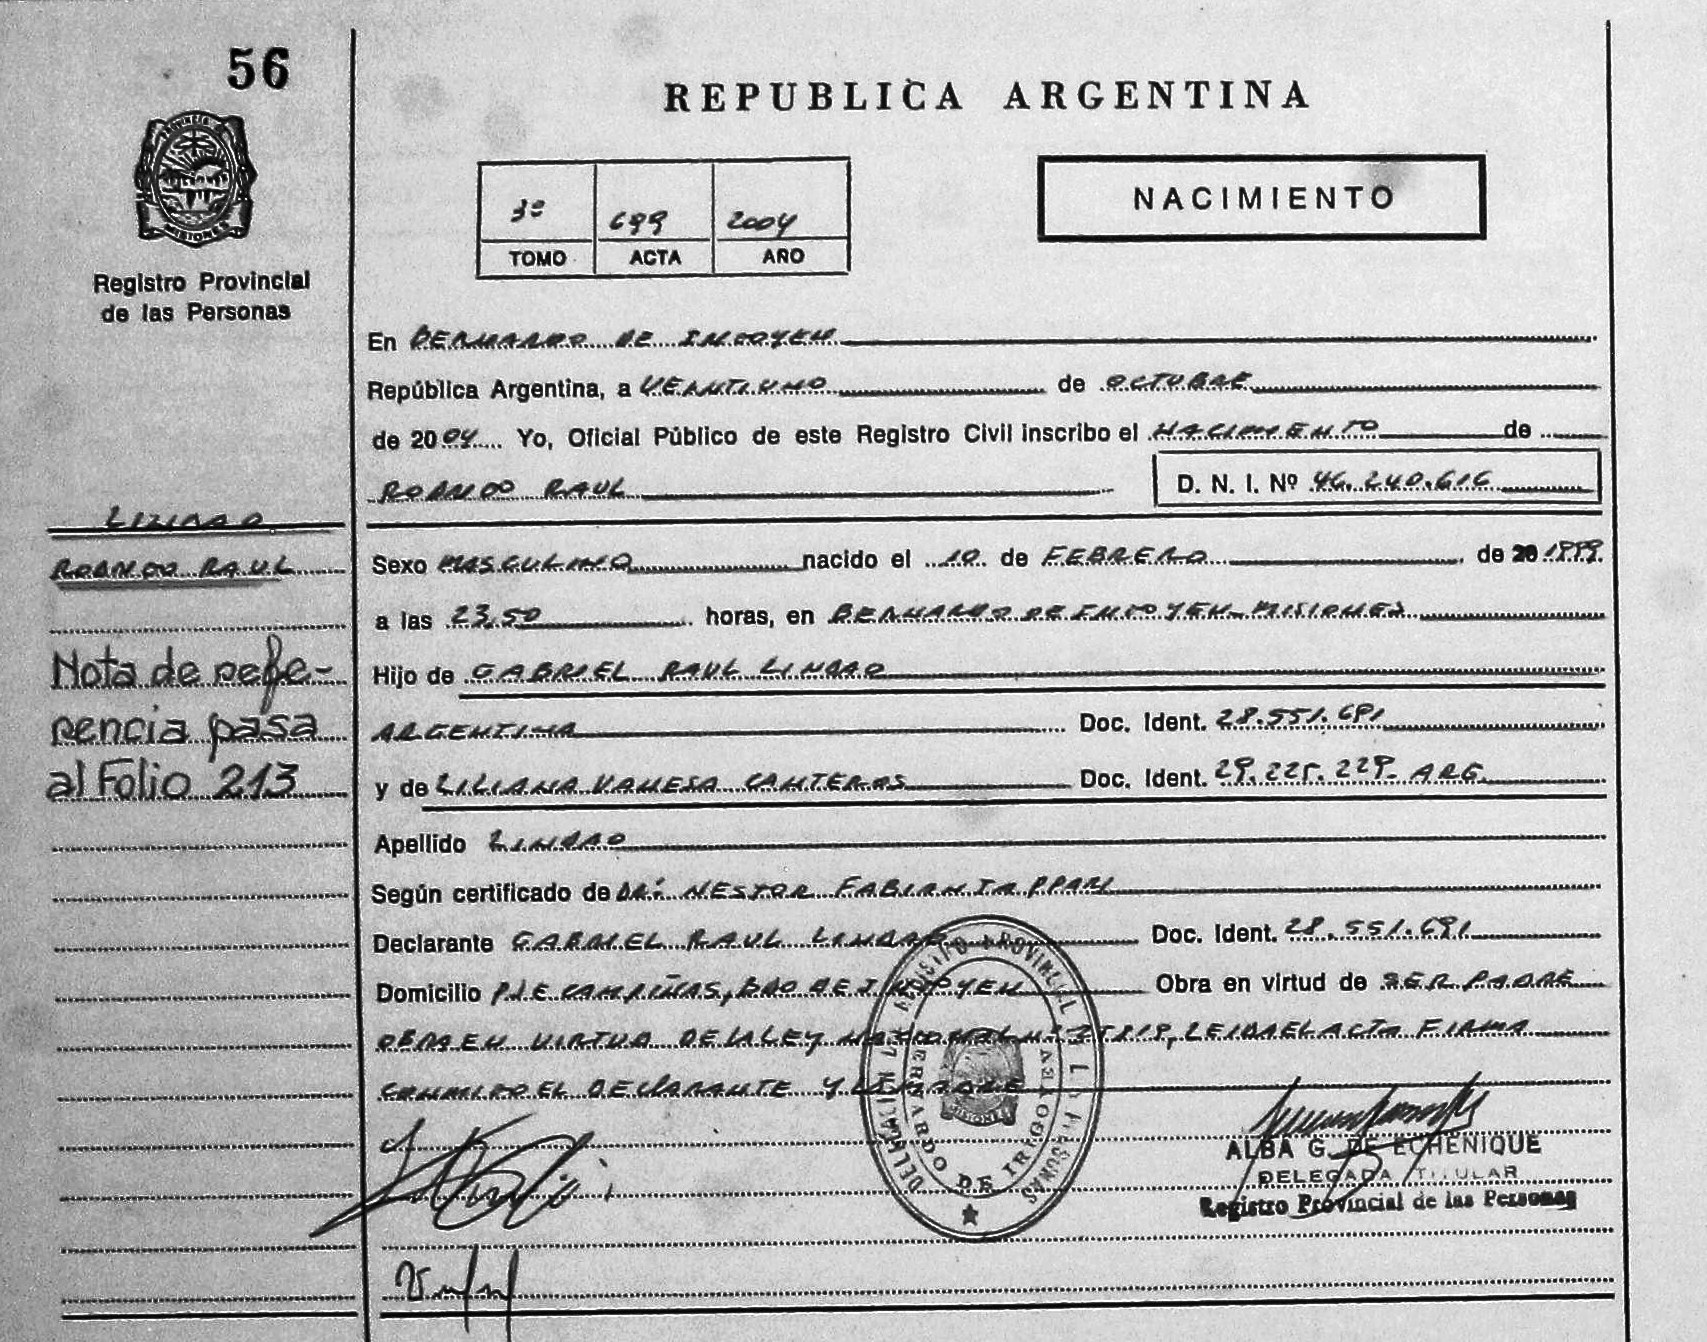 56
REPUBLICA ARGENTINA
NACIMIENTO
3º 699 2004
TOMO ACTA AÑO
PROVINCIA DE
MISIONES
Registro Provincial
de las Personas
En BERNARDO DE IRIGOYEN
República Argentina, a VEINTIUNO de OCTUBRE
de 2004 Yo, Oficial Público de este Registro Civil inscribo el NACIMIENTO de
RAUL
D. N. I. Nº 46.240.616
RAUL
Sexo MASCULINO nacido el 10 de FEBRERO de 20 1999
a las 23,50 horas, en BERNARDO DE IRIGOYEN - MISIONES
Nota de refe-
rencia pasa
al Folio 213
Hijo de GABRIEL RAUL
ARGENTINA Doc. Ident. 28.551.691
y de LILIANA VANESA CANTEROS Doc. Ident. 29.225.229. ARG.
Apellido
Según certificado de DR: NESTOR FABIAN TAPPARI
Declarante GABRIEL RAUL Doc. Ident. 28.551.691
Domicilio PJE CAMPIÑAS, BDO DE IRIGOYEN Obra en virtud de SER PADRE
OBRA EN VIRTUD DE LA LEY NACIONAL Nº LEIDA EL ACTA FIRMA
CONMIGO EL DECLARANTE Y
REGISTRO PROVINCIAL DE LAS PERSONAS
BERNARDO DE IRIGOYEN
MISIONES
ALBA G. DE ECHENIQUE
DELEGADA TITULAR
Registro Provincial de las Personas